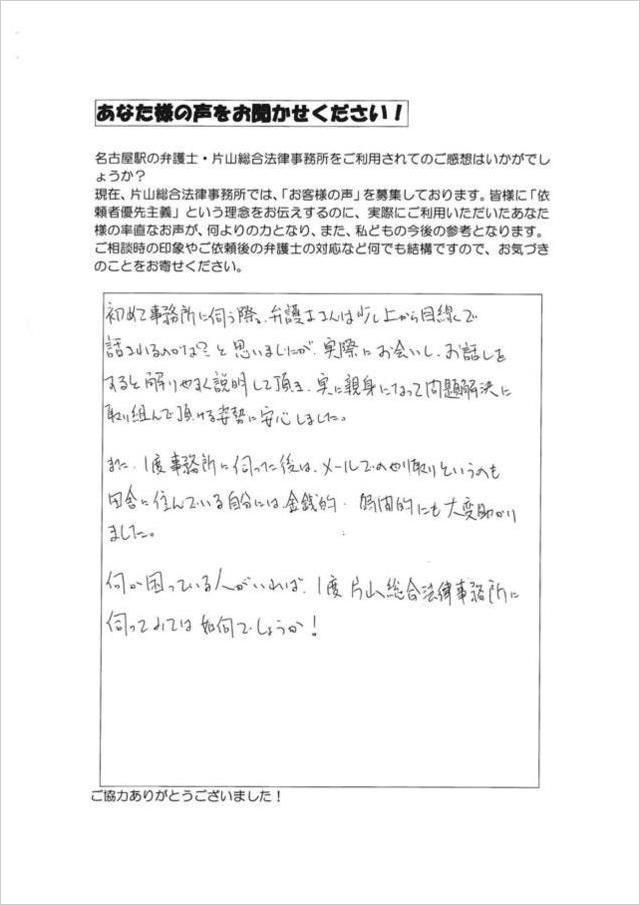 あなた様の声をお聞かせください！
名古屋駅の弁護士・片山総合法律事務所をご利用されてのご感想はいかがでし
ょうか？
現在、片山総合法律事務所では、「お客様の声」を募集しております。皆様に「依
頼者優先主義」という理念をお伝えするのに、実際にご利用いただいたあなた
様の率直なお声が、何よりの力となり、また、私どもの今後の参考となります。
ご相談時の印象やご依頼後の弁護士の対応など何でも結構ですので、お気づき
のことをお寄せください。
初めて事務所に伺う際、弁護士さんは少し上から目線で
話されるのかな？と思いましたが、実際にお会いし、お話しを
すると解りやすく説明して頂き、実に親身になって問題解決に
取り組んで頂ける姿勢に安心しました。
また、1度事務所に伺った後は、メールでのやり取りというのも
田舎に住んでいる自分には金銭的・時間的にも大変助かり
ました。
何か困っている人がいれば、1度片山総合法律事務所に
伺ってみては如何でしょうか！
ご協力ありがとうございました！